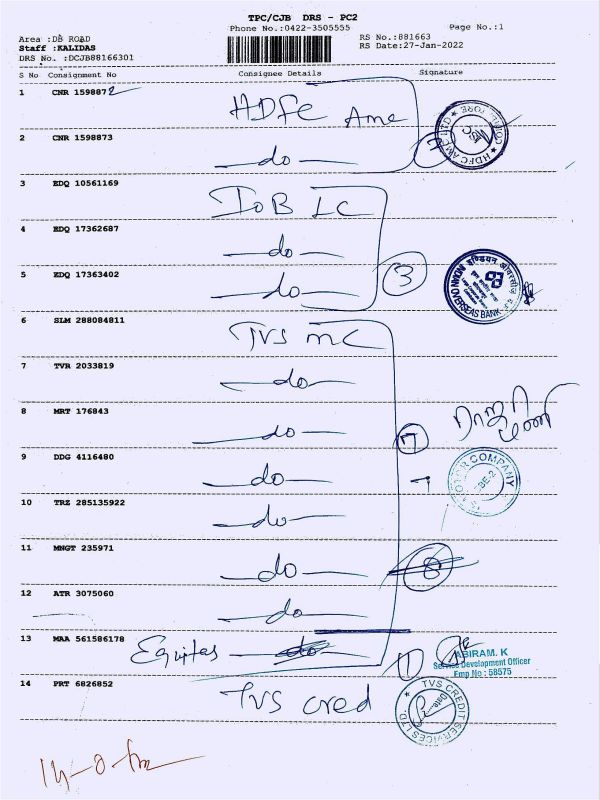 TPC/CJB DRS - PC2
Phone No.:0422-3505555
Page No.:1
Area :DB ROAD
Staff :KALIDAS
DRS No. :DCJB88166301
RS No.:881663
RS Date:27-Jan-2022
S No Consignment No Consignee Details Signature
1 CNR 1598872 HDFC Amc
2 CNR 1598873 do
HDFC AMC LTD
3 EDQ 10561169 IOB LC
4 EDQ 17362687 do
5 EDQ 17363402 do 3
INDIAN OVERSEAS BANK
6 SLM 288084811 TVS MC
7 TVR 2033819 do
8 MRT 176843 do 7
ராஜா
மணி
9 DDG 4116480 do
MOTOR COMPANY
10 TRZ 285135922 do
11 MNGT 235971 do 8
12 ATR 3075060 do
13 MAA 561586178 Equitas do 1
ABIRAM. K
Service Development Officer
Emp No : 58575
14 PRT 6826852 TVS cred
TVS CREDIT SERVICES LTD.